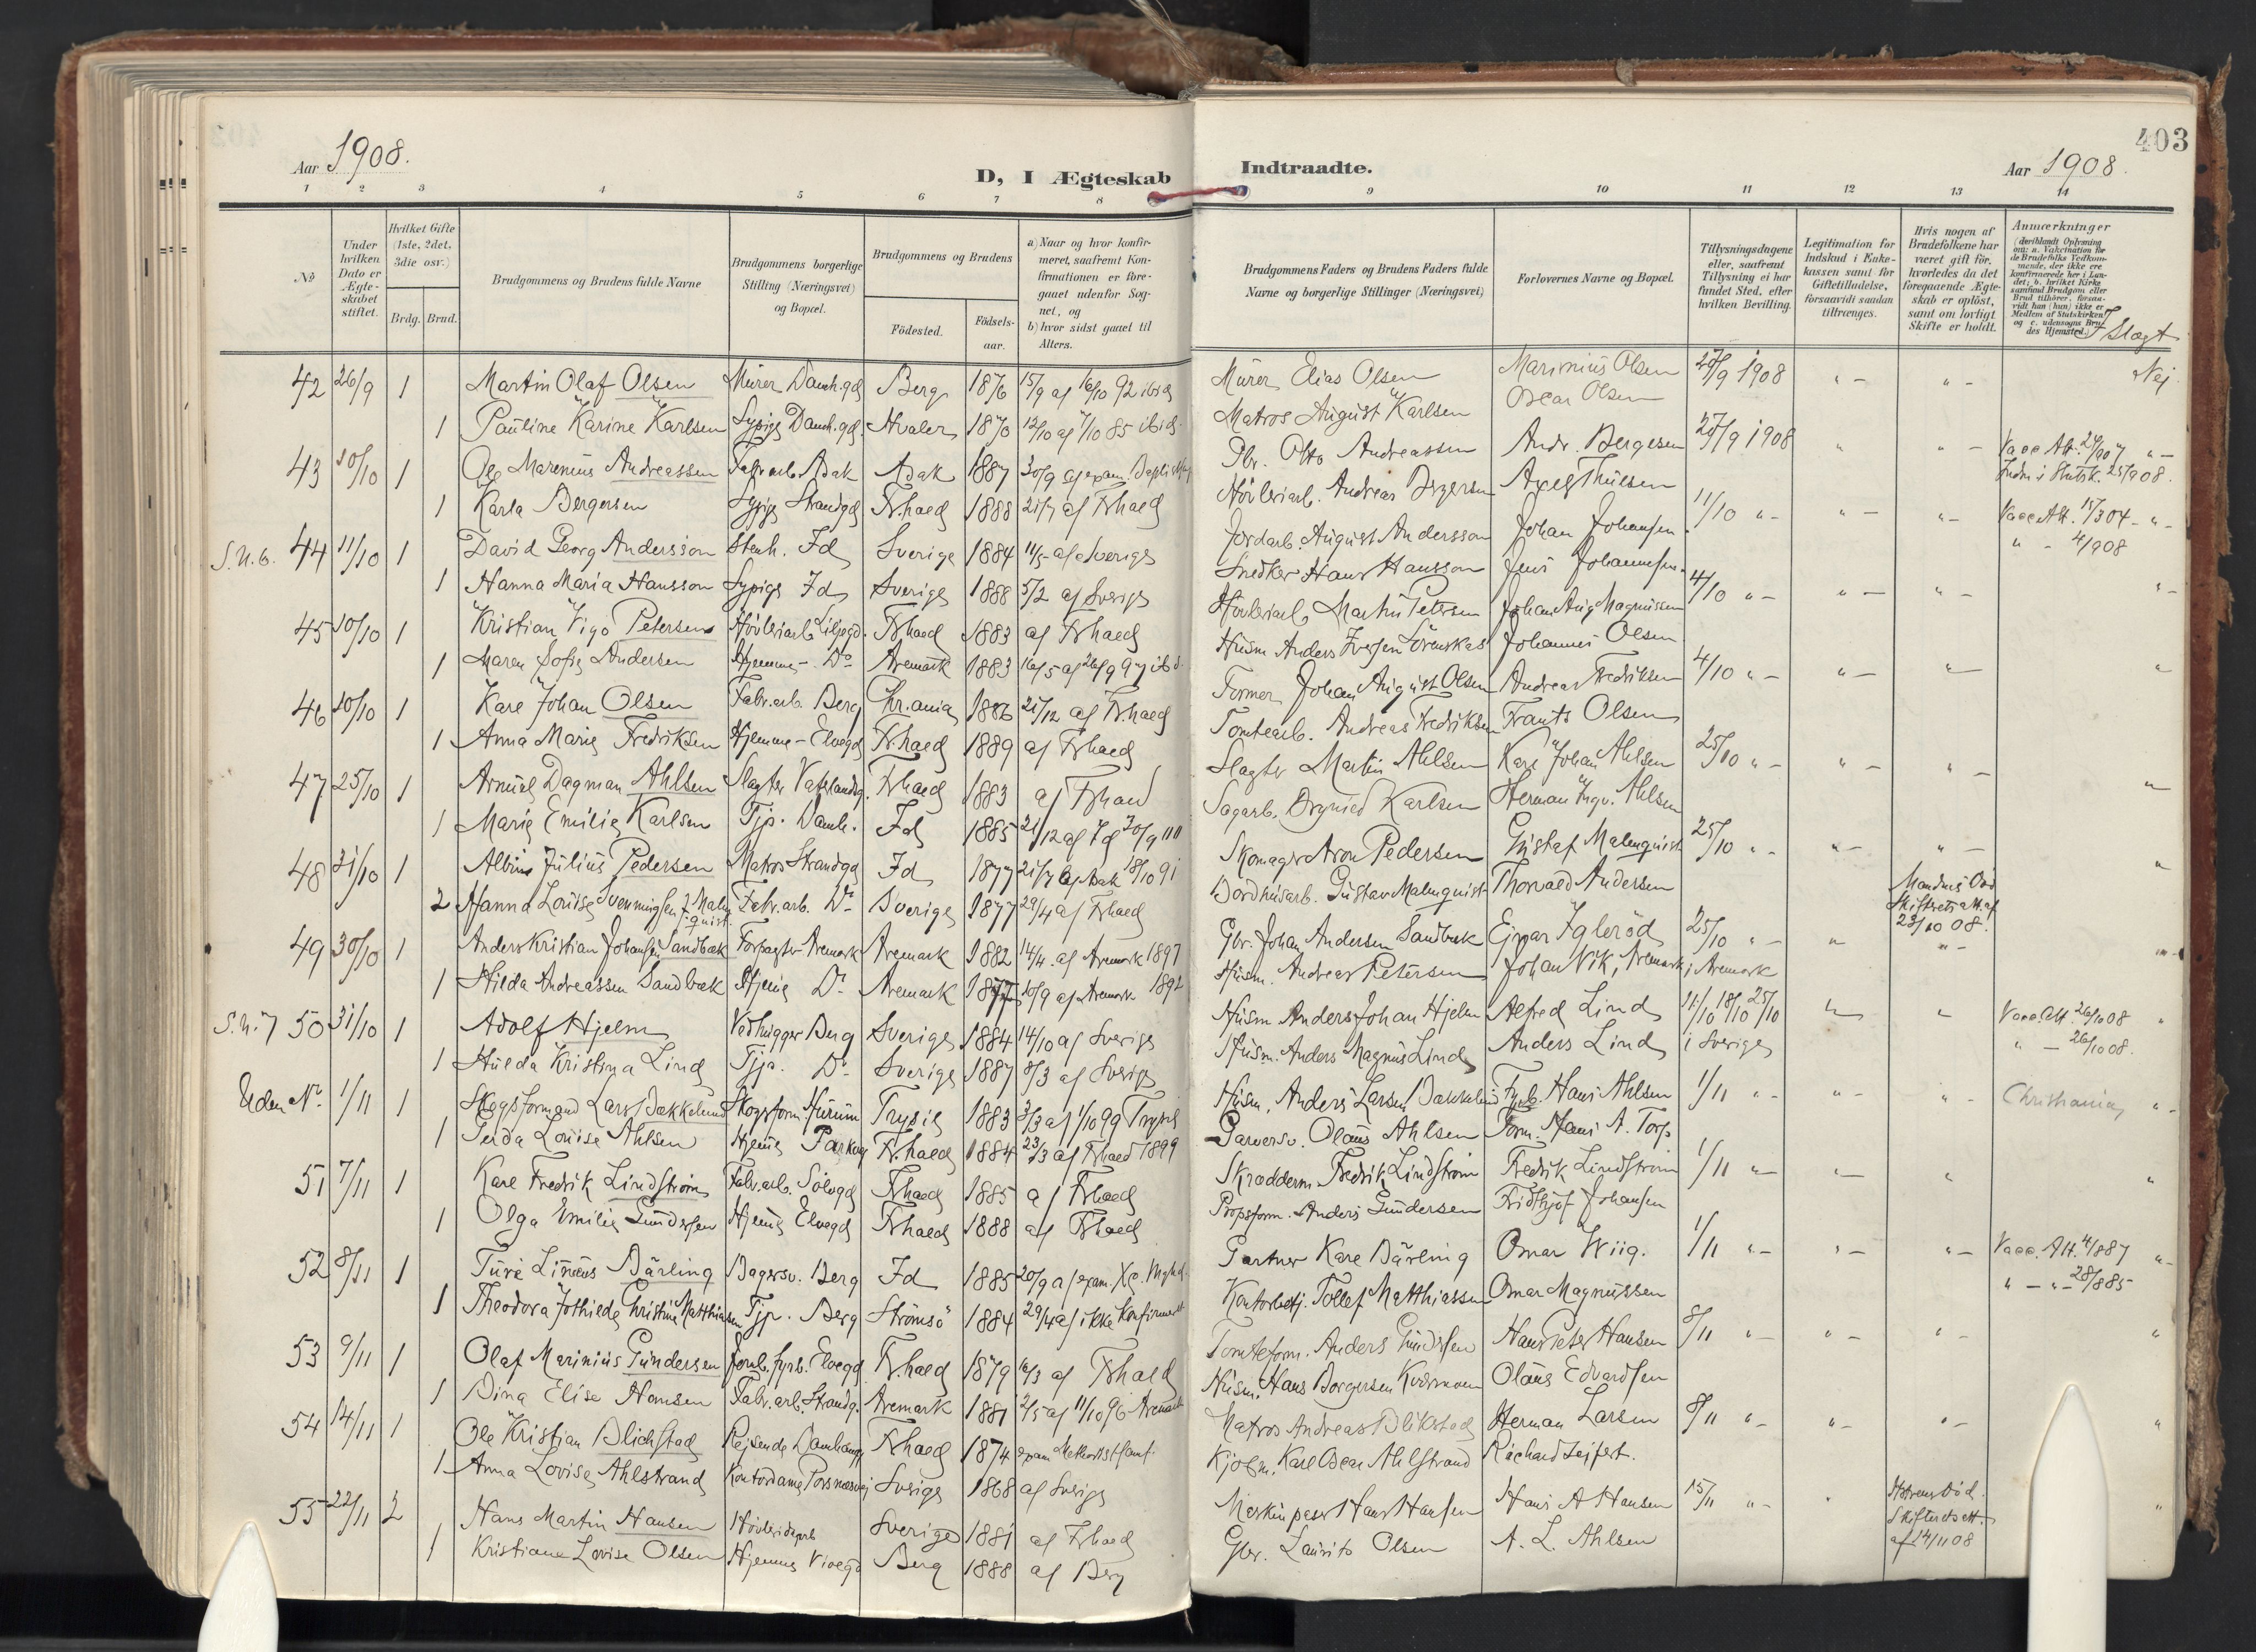 403
Aar 1908.
D, I Ægteskab Indtraadte.
Aar 1908.
1 2 3 4 5 6 7 8 9 10 11 12 13 14
№
Under hvilken Dato er Ægteskabet stiftet.
Hvilket Gifte (1ste, 2det, 3die osv.)
Brdg. Brud.
Brudgommens og Brudens fulde Navne
Brudgommens borgerlige Stilling (Næringsvei) og Bopæl.
Brudgommens og Brudens
Födested. Födselsaar.
a) Naar og hvor konfirmeret, saafremt Konfirmationen er foregaaet udenfor Sognet, og
b) hvor sidst gaaet til Alters.
Brudgommens Faders og Brudens Faders fulde Navne og borgerlige Stillinger (Næringsvei)
Forlovernes Navne og Bopæl.
Tillysningsdagene eller, saafremt Tillysning ei har fundet Sted, efter hvilken Bevilling.
Legitimation for Indskud i Enkekassen samt for Giftetilladelse, forsaavidt saadan tiltrænges.
Hvis nogen af Brudefolkene har været gift för, hvorledes da det foregaaende Ægteskab er oplöst, samt om lovligt Skifte er holdt.
Anmærkninger
(deriblandt Oplysning om: a. Vakcination for de Brudefolks Vedkommende, der ikke ere konfirmerede her i Landet; b. hvilket Kirkesamfund Brudgom eller Brud tilhörer, forsaavidt han (hun) ikke er Medlem af Statskirken og c. udensogns Brudes Hjemsted.)
I Slægt
42 26/9 1 Martin Olaf Olsen Murer Damh.gd Berg 1876 15/9 af 16/10 92 ibid Murer Elias Olsen Marinius Olsen 20/9 1908 " - " - Nej
1 Pauline Karine Karlsen Sypige Damh.gd. Hvaler 1870 12/10 af 7/10 85 ibid. Matros August Karlsen Oscar Olsen
43 10/10 1 Ole Marenius Andreassen Fabr.arb. Bak Bak 1887 30/9 Gbr. Otto Andreassen Andr. Bergesen 27/9 1908 " " - Vacc Att.
1 Karla Bergersen Sypige Strandgd Fr.hald 1888 21/7 af Frhald Hövleriarb. Andreas Bergersen Axel Thulsen
S.N.6. 44 11/10 1 David Georg Andersson Stenh. Id Sverige 1884 11/5 af Sverige Jordarb. August Andersson Johan Johansen 11/10 " - " - " - Vacc Att. 15/3 04 - " -
1 Hanna Maria Hansson Sypige Id Sverige 1888 5/2 af Sverige Snedker Hans Hansson Jens Johannsen " - 4/9 08
45 10/10 1 Kristian Vigo Petersen Hövleriarb. Fr.hald 1883 af Frhald Hövleriarb. Martin Petersen Johan Aug Magnussen 4/10 " - " - " - " -
1 Maren Sofie Andersen Hjemme - Do Aremark 1883 16/5 af 26/9 97 ibd. Husm Anders Iversen Johannes Olsen
46 10/10 1 Karl Johan Olsen Fabr.arb. Berg Chr.ania 1886 21/12 af Fr.hald Former Johan August Olsen Andreas Fredriksen 4/10 " - " - " - "
1 Anna Marie Fredriksen Hjemme - Elvegd Fr.hald 1889 af Frhald Tomtearb. Andreas Fredriksen Frants Olsen
47 25/10 1 Arnuld Dagman Ahlsen Slagter Frhald 1883 af Frhald Slagter Martin Ahlsen Karl Johan Ahlsen 25/10 " - " - " - "
1 Marie Emilie Karlsen Tjp. Damh. Id 1885 21/12 af Id Sagarb. Karlsen Herman Ingv. Ahlsen
48 31/10 1 Albin Julius Pedersen Matros Strandgd Id 1877 21/7 af Bak 18/10 91 Skomager Aron Pedersen Gustaf Malmquist 25/10 " - " - " - "
2 Hanna Louise Svenningsen f. Malmquist. Fabr.arb. Do Sverige 1877 29/4 af Frhald Bordhusarb. Gustav Malmquist Thorvald Andersen Mandens Död Skifterets att. af 23/10 08.
49 30/10 1 Anders Kristian Johansen Sandbæk Forpagter Aremark Aremark 1882 14/4. af Aremark 1897 Gbr. Johan Andersen Sandbæk Ejnar Igleröd 25/10 " - " " -
1 Hilda Andreassen Sandbæk Hjemme Do Aremark 10/9 af Aremark 1892 Husm. Andreas Petersen Johan Vik, Aremark i Aremark
S.N.7 50 31/10 1 Adolf Hjelm Vedhugger Berg Sverige 1884 14/10 af Sverige Husm Anders Johan Hjelm Alfred Lind 11/10 18/10 25/10 " - " Vacc.Att. 26/10 08 "
1 Hulda Kristina Lind Tjp. Do Sverige 1887 8/3 af Sverige Husm. Anders Magnus Lind Anders Lind i Sverige " - 26/10 08.
Uden No. 1/11 1 Skogsformand Lars Bækkelund Skogsform. Hurum Trysil 1883 3/3 af 1/10 99 Trysil Husm. Anders Larsen Bækkelund Fyrb. Hans Ahlsen 1/11 " - " - " - Christiania " -
1 Gerda Louise Ahlsen Hjemme Parkvej Fr.hald 1884 23/3 af Frhald 1899 Garversv. Olaus Ahlsen Form. Hans A. Torp
51 7/11 1 Karl Fredrik Lindström Fabr.arb. Sölvgd Frhald 1885 af Frhald Skrædderm. Fredrik Lindström Fredrik Lindström 1/11 " - " - " "
1 Olga Emilie Gundersen Hjemme Elvegd Frhald 1888 af Frhald Propsform. Anders Gundersen Fridthjof Johansen
52 8/11 1 Ture Linneus Bärling Bagersv. Berg Id 1885 20/9 Gartner Karl Bärling Omar Wiig. 1/11 " - " - " - Vacc. Att. 4/8 87 " -
1 Theodora Jothilde Christine Matthiasen Tjp. Berg Strömsö 1884 29/4 af ikke konfirmert Kontorbetj. Tollef Matthiassen Omar Magnussen " - " - 28/8 85
53 9/11 1 Olaf Marinius Gundersen Jernb.fyrb. Elvegd Fr.hald 1879 16/3 af Frhald Tomteform. Anders Gundersen Hans Peter Hansen 8/11 " - " - " - "
1 Dina Elise Hansen Fabr.arb. Strandg. Aremark 1881 2/5 af 11/10 96 Aremark Husm. Hans Borgersen Olaus Edvardsen
54 14/11 1 Ole Kristian Blichstad Rejsende Damhaug Frhald 1874 Matros Andreas Blikstad Herman Larsen 8/11 " - " - " - "
1 Anna Lovise Ahlstrand Kontordame Porsnæsvej Sverige 1868 af Sverige Kjöbm. Karl Oscar Ahlstrand Richard Seifert.
55 22/11 2 Hans Martin Hansen Hövleriarb Sverige 1881 af Frhald Maskinpasser Hans Hansen Hans A Hansen 15/11 " - " Konens Död. Skifterets att. af 14/11 08 "
1 Kristiane Lovise Olsen Hjemme Berg 1888 af Berg Gbr. Laurits Olsen A. L. Ahlsen